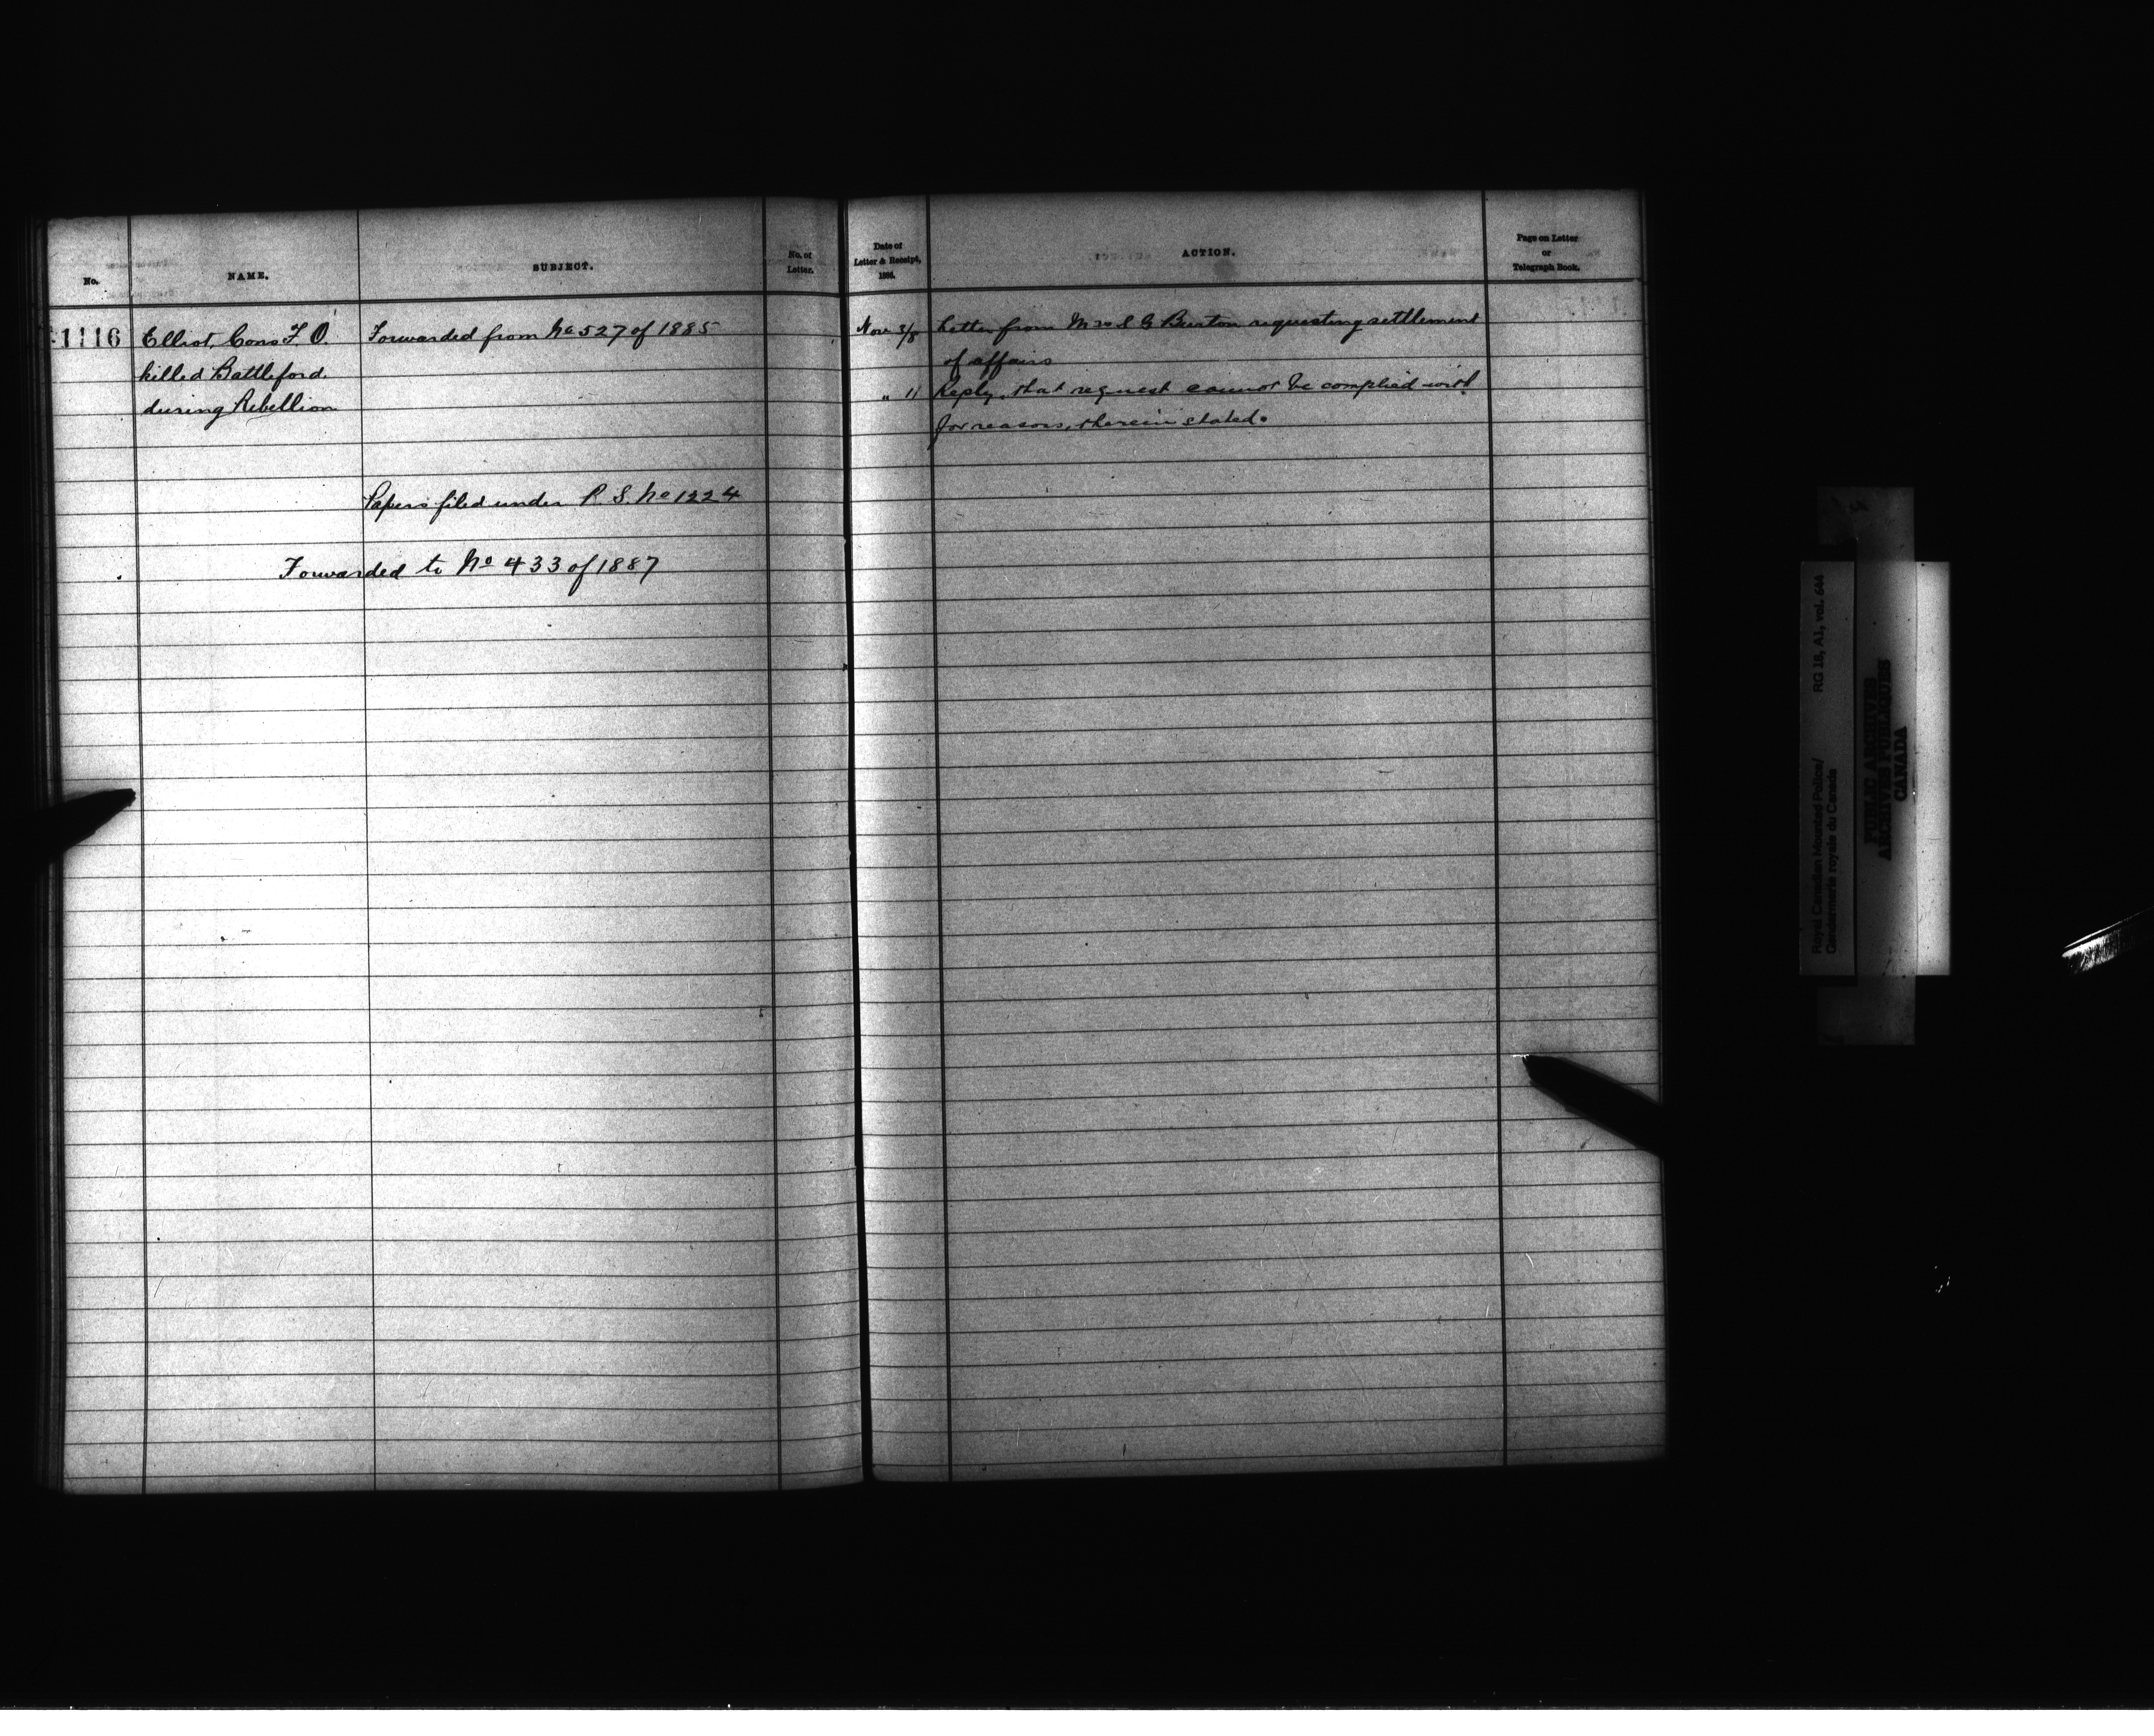 No.
NAME.
SUBJECT.
No. of
Letter.
Date of
Letter & Receipt,
1886.
ACTION.
Page on Letter
or
Telegraph Book.
1116
Elliot, Cons F. O.
killed Battleford
during Rebellion
Forwarded from No 527 of 1885
Papers filed under P. S. No 1224
Forwarded to No 433 of 1887
Nov 3/8
Letter from Mrs S G Burton requesting settlement
of affairs
" 11
Reply, that request cannot be complied with
for reasons, therein stated.
Royal Canadian Mounted Police/
Gendarmerie royale du Canada
RG 18, A1, vol. 644
PUBLIC ARCHIVES
ARCHIVES PUBLIQUES
CANADA